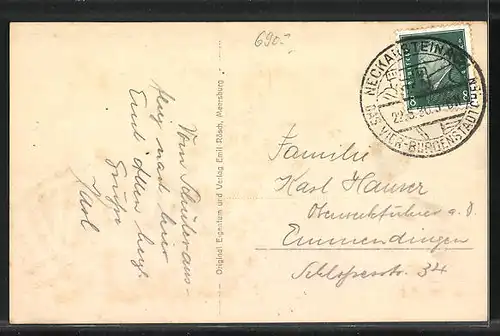 690.-
Vom Schüleraus-
flug nach hier
Euch allen herzl.
Grüße
Karl
Original Eigentum und Verlag Emil Rösch, Meersburg
NECKARSTEINACH
DAS VIER-BURGENSTÄDTCHEN
8
Familie
Karl Hauser
Oberwerkführer a. D.
Emmendingen
Schlosserstr. 34